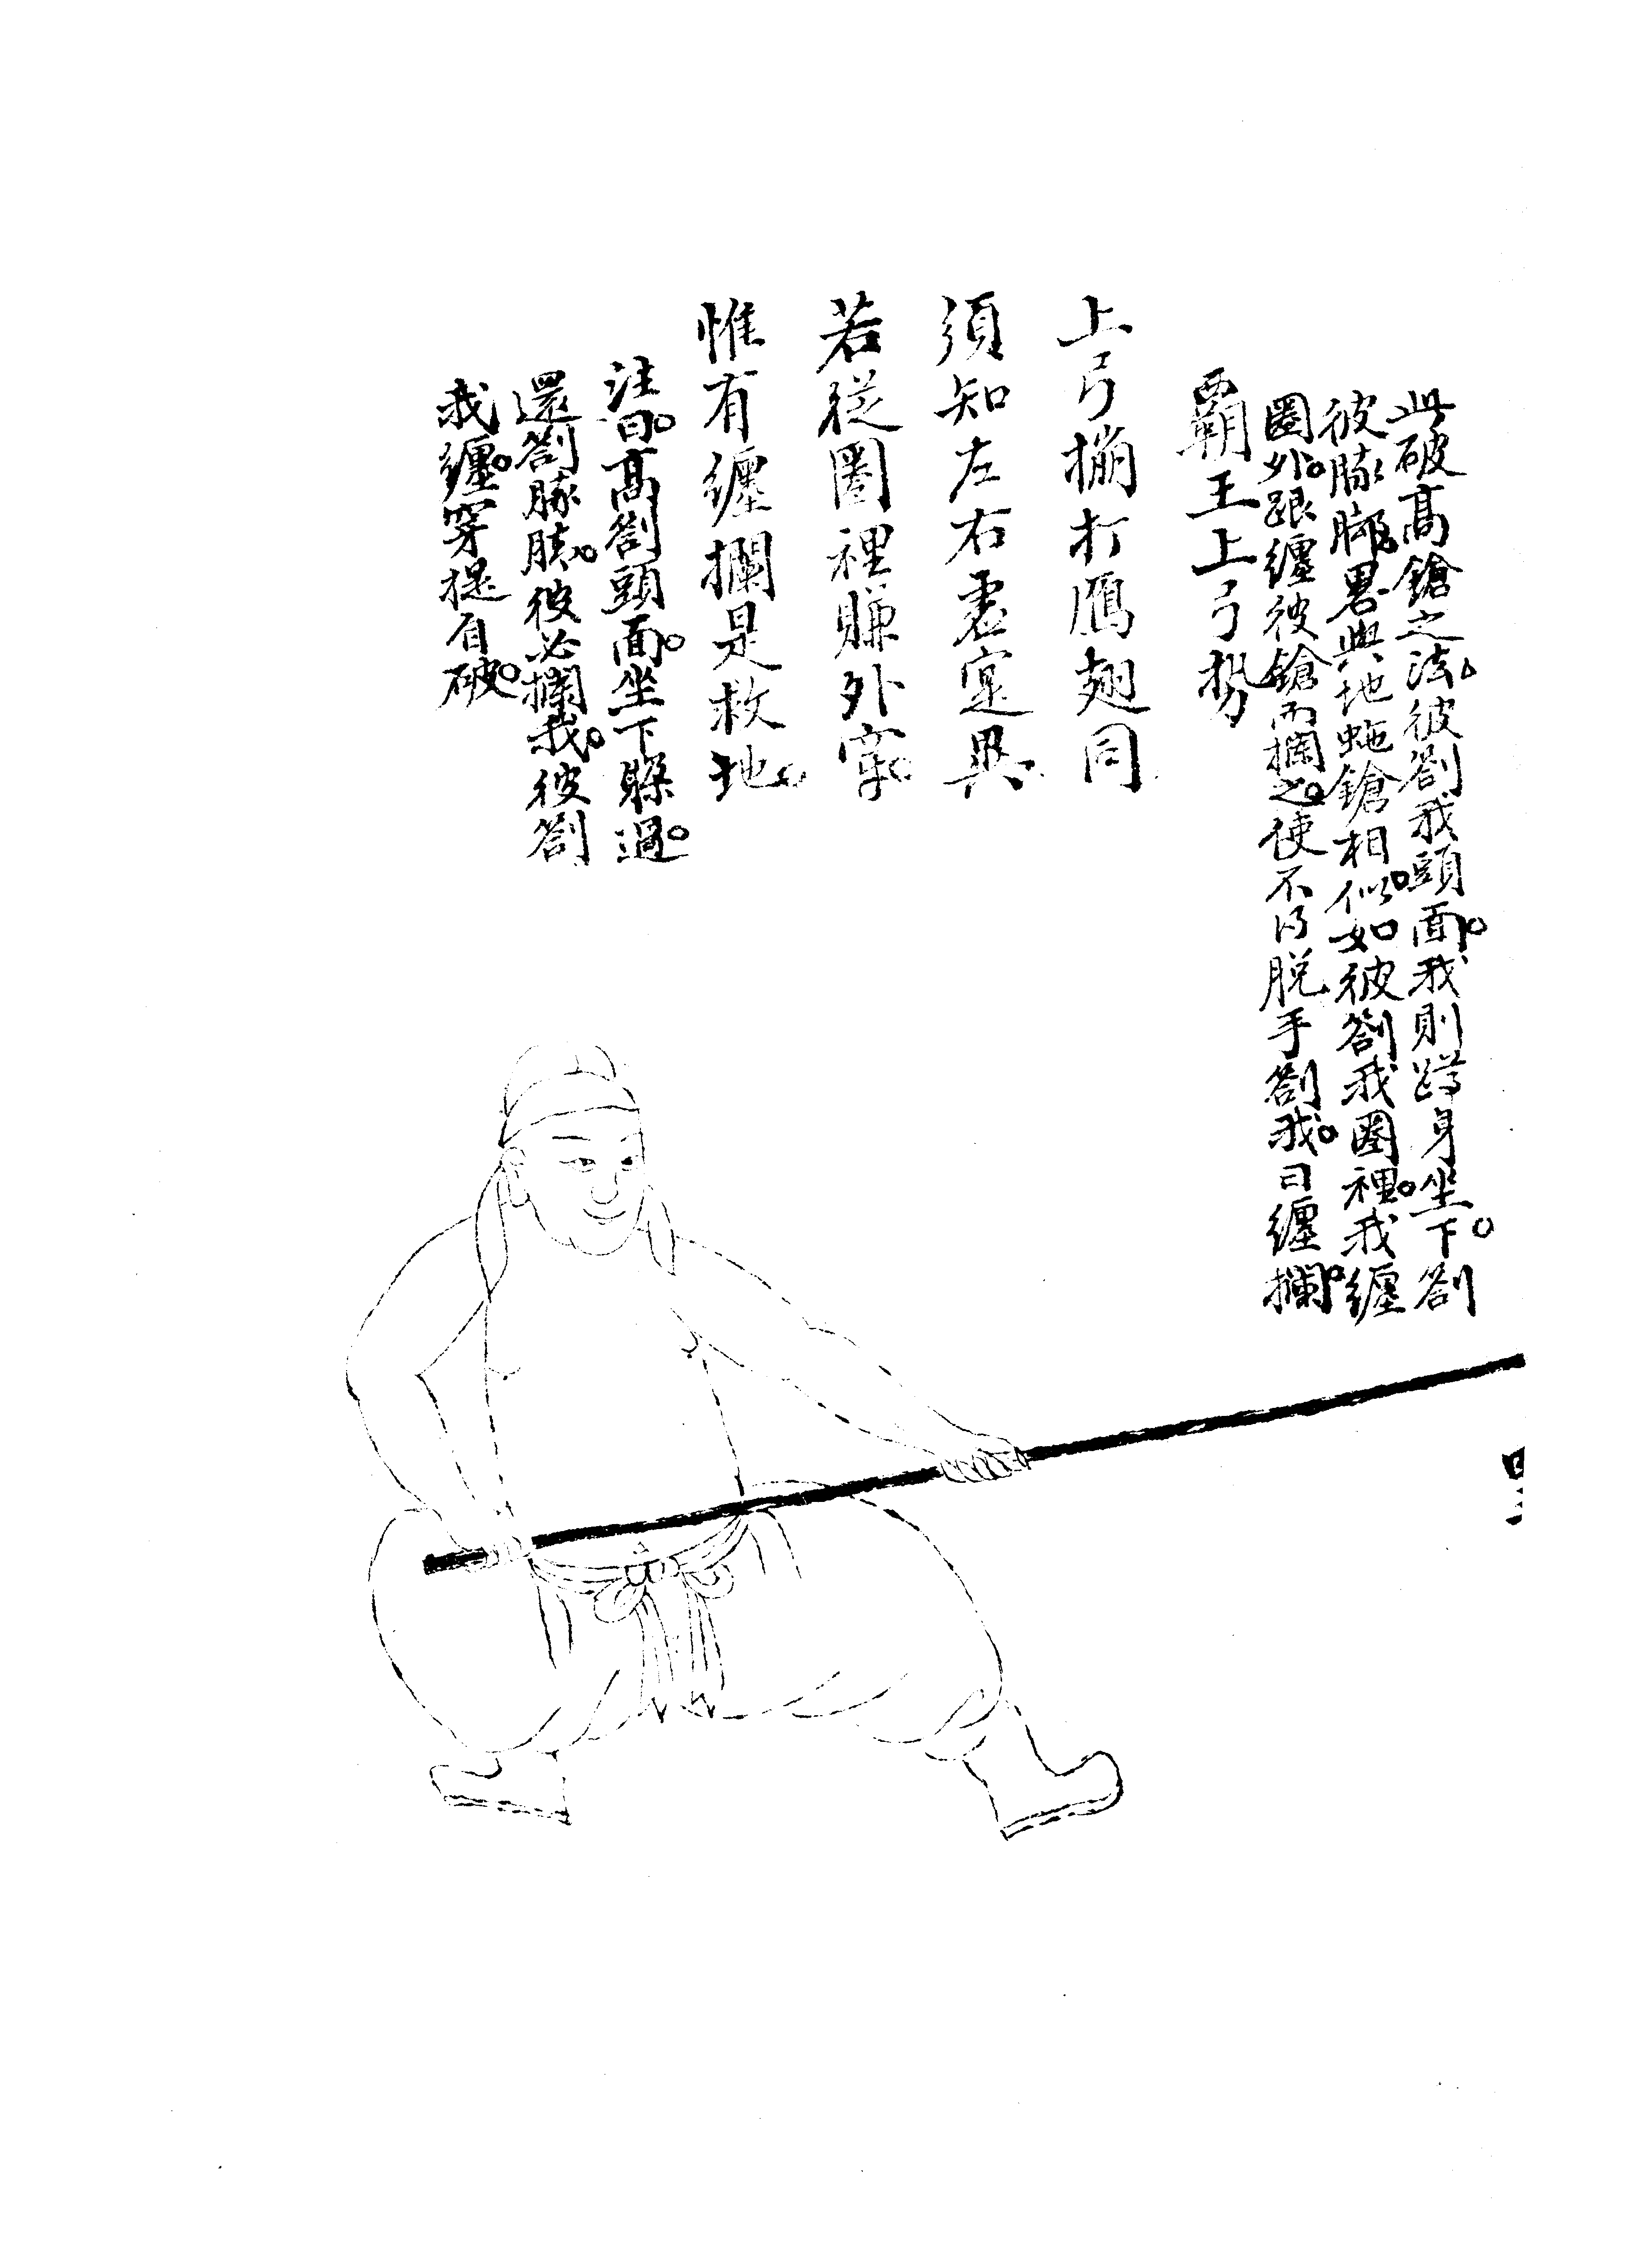 此破高鎗之法。彼劄我頭面。我則蹲身坐下。劄
彼膝腳。畧與地蛇鎗相似。如彼劄我圈裡。我纏
圈外。跟纏彼鎗而攔之。使不得脫手劄我。曰纏攔。
霸王上弓勢
上弓掤打鴈翅同
須知左右虛寔異
若從圈裡賺外穿。
惟有纏攔是救地。
注曰。高劄頭面。坐下躱過。
還劄膝膝。彼必攔我。彼劄
我纏。穿提自破。